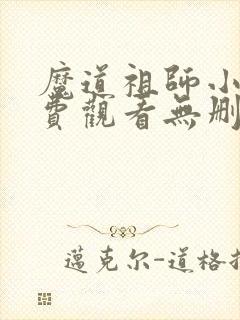 魔道祖師小
費觀看無刪
邁克尔-道格拉